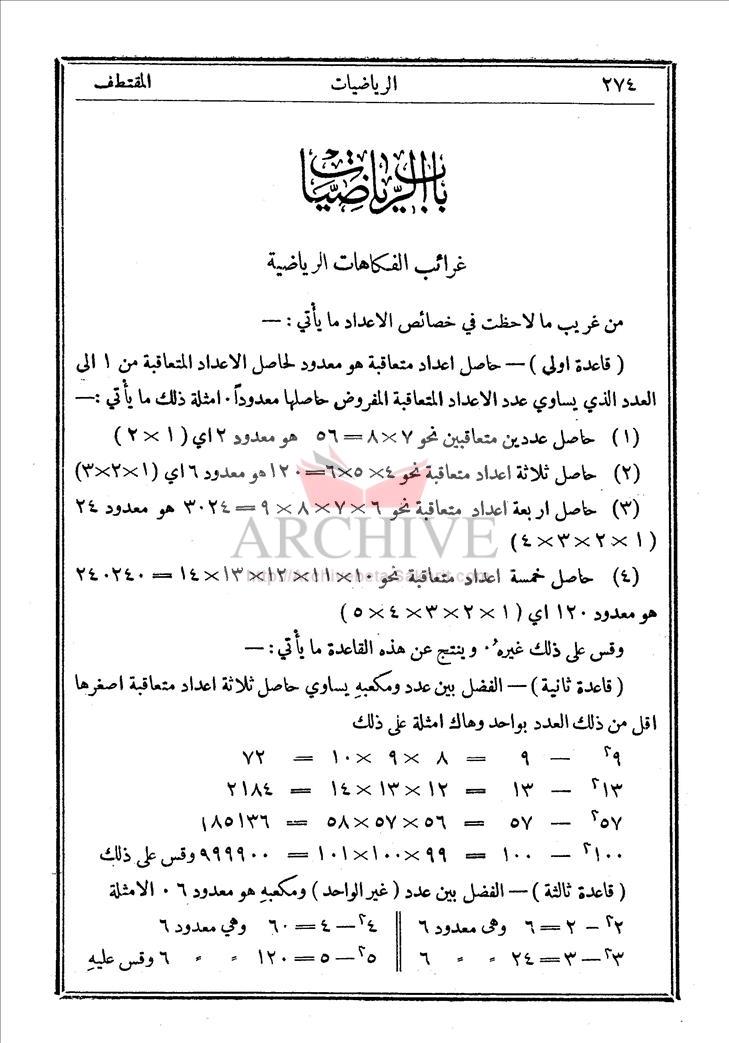 ٢٧٤ الرياضيات المقتطف
باب الرياضيات
غرائب الفكاهات الرياضية
من غريب ما لاحظت في خصائص الاعداد ما يأتي : —
( قاعدة اولى ) — حاصل اعداد متعاقبة هو معدود لحاصل الاعداد المتعاقبة من ١ الى
العدد الذي يساوي عدد الاعداد المتعاقبة المفروض حاصلها معدوداً ٠ امثلة ذلك ما يأتي :—
(١) حاصل عددين متعاقبين نحو ٧ × ٨ = ٥٦ هو معدود ٢ اي ( ١ × ٢ )
(٢) حاصل ثلاثة اعداد متعاقبة نحو ٤ × ٥ × ٦ = ١٢٠ هو معدود ٦ اي (١×٢×٣)
(٣) حاصل اربعة اعداد متعاقبة نحو ٦ × ٧ × ٨ × ٩ = ٣٠٢٤ هو معدود ٢٤
( ١ × ٢ × ٣ × ٤ )
(٤) حاصل خمسة اعداد متعاقبة نحو ١٠ × ١١ × ١٢ × ١٣ × ١٤ = ٢٤٠٢٤٠
هو معدود ١٢٠ اي ( ١ × ٢ × ٣ × ٤ × ٥ )
وقس على ذلك غيره ٠ وينتج عن هذه القاعدة ما يأتي : —
( قاعدة ثانية ) — الفضل بين عدد ومكعبهِ يساوي حاصل ثلاثة اعداد متعاقبة اصغرها
اقل من ذلك العدد بواحد وهاك امثلة على ذلك
٩٢ — ٩ = ٨ × ٩ × ١٠ = ٧٢
١٣٢ — ١٣ = ١٢ × ١٣ × ١٤ = ٢١٨٤
٥٧٢ — ٥٧ = ٥٦ × ٥٧ × ٥٨ = ١٨٥١٣٦
١٠٠٢ — ١٠٠ = ٩٩ × ١٠٠ × ١٠١ = ٩٩٩٩٠٠ وقس على ذلك
( قاعدة ثالثة ) — الفضل بين عدد ( غير الواحد ) ومكعبهِ هو معدود ٦ ٠ الامثلة
٢٢ — ٢ = ٦ وهي معدود ٦ ‖ ٤٢ — ٤ = ٦٠ وهي معدود ٦
٣٢ — ٣ = ٢٤ = = ٦ ‖ ٥٢ — ٥ = ١٢٠ = = ٦ وقس عليهِ
ARCHIVE